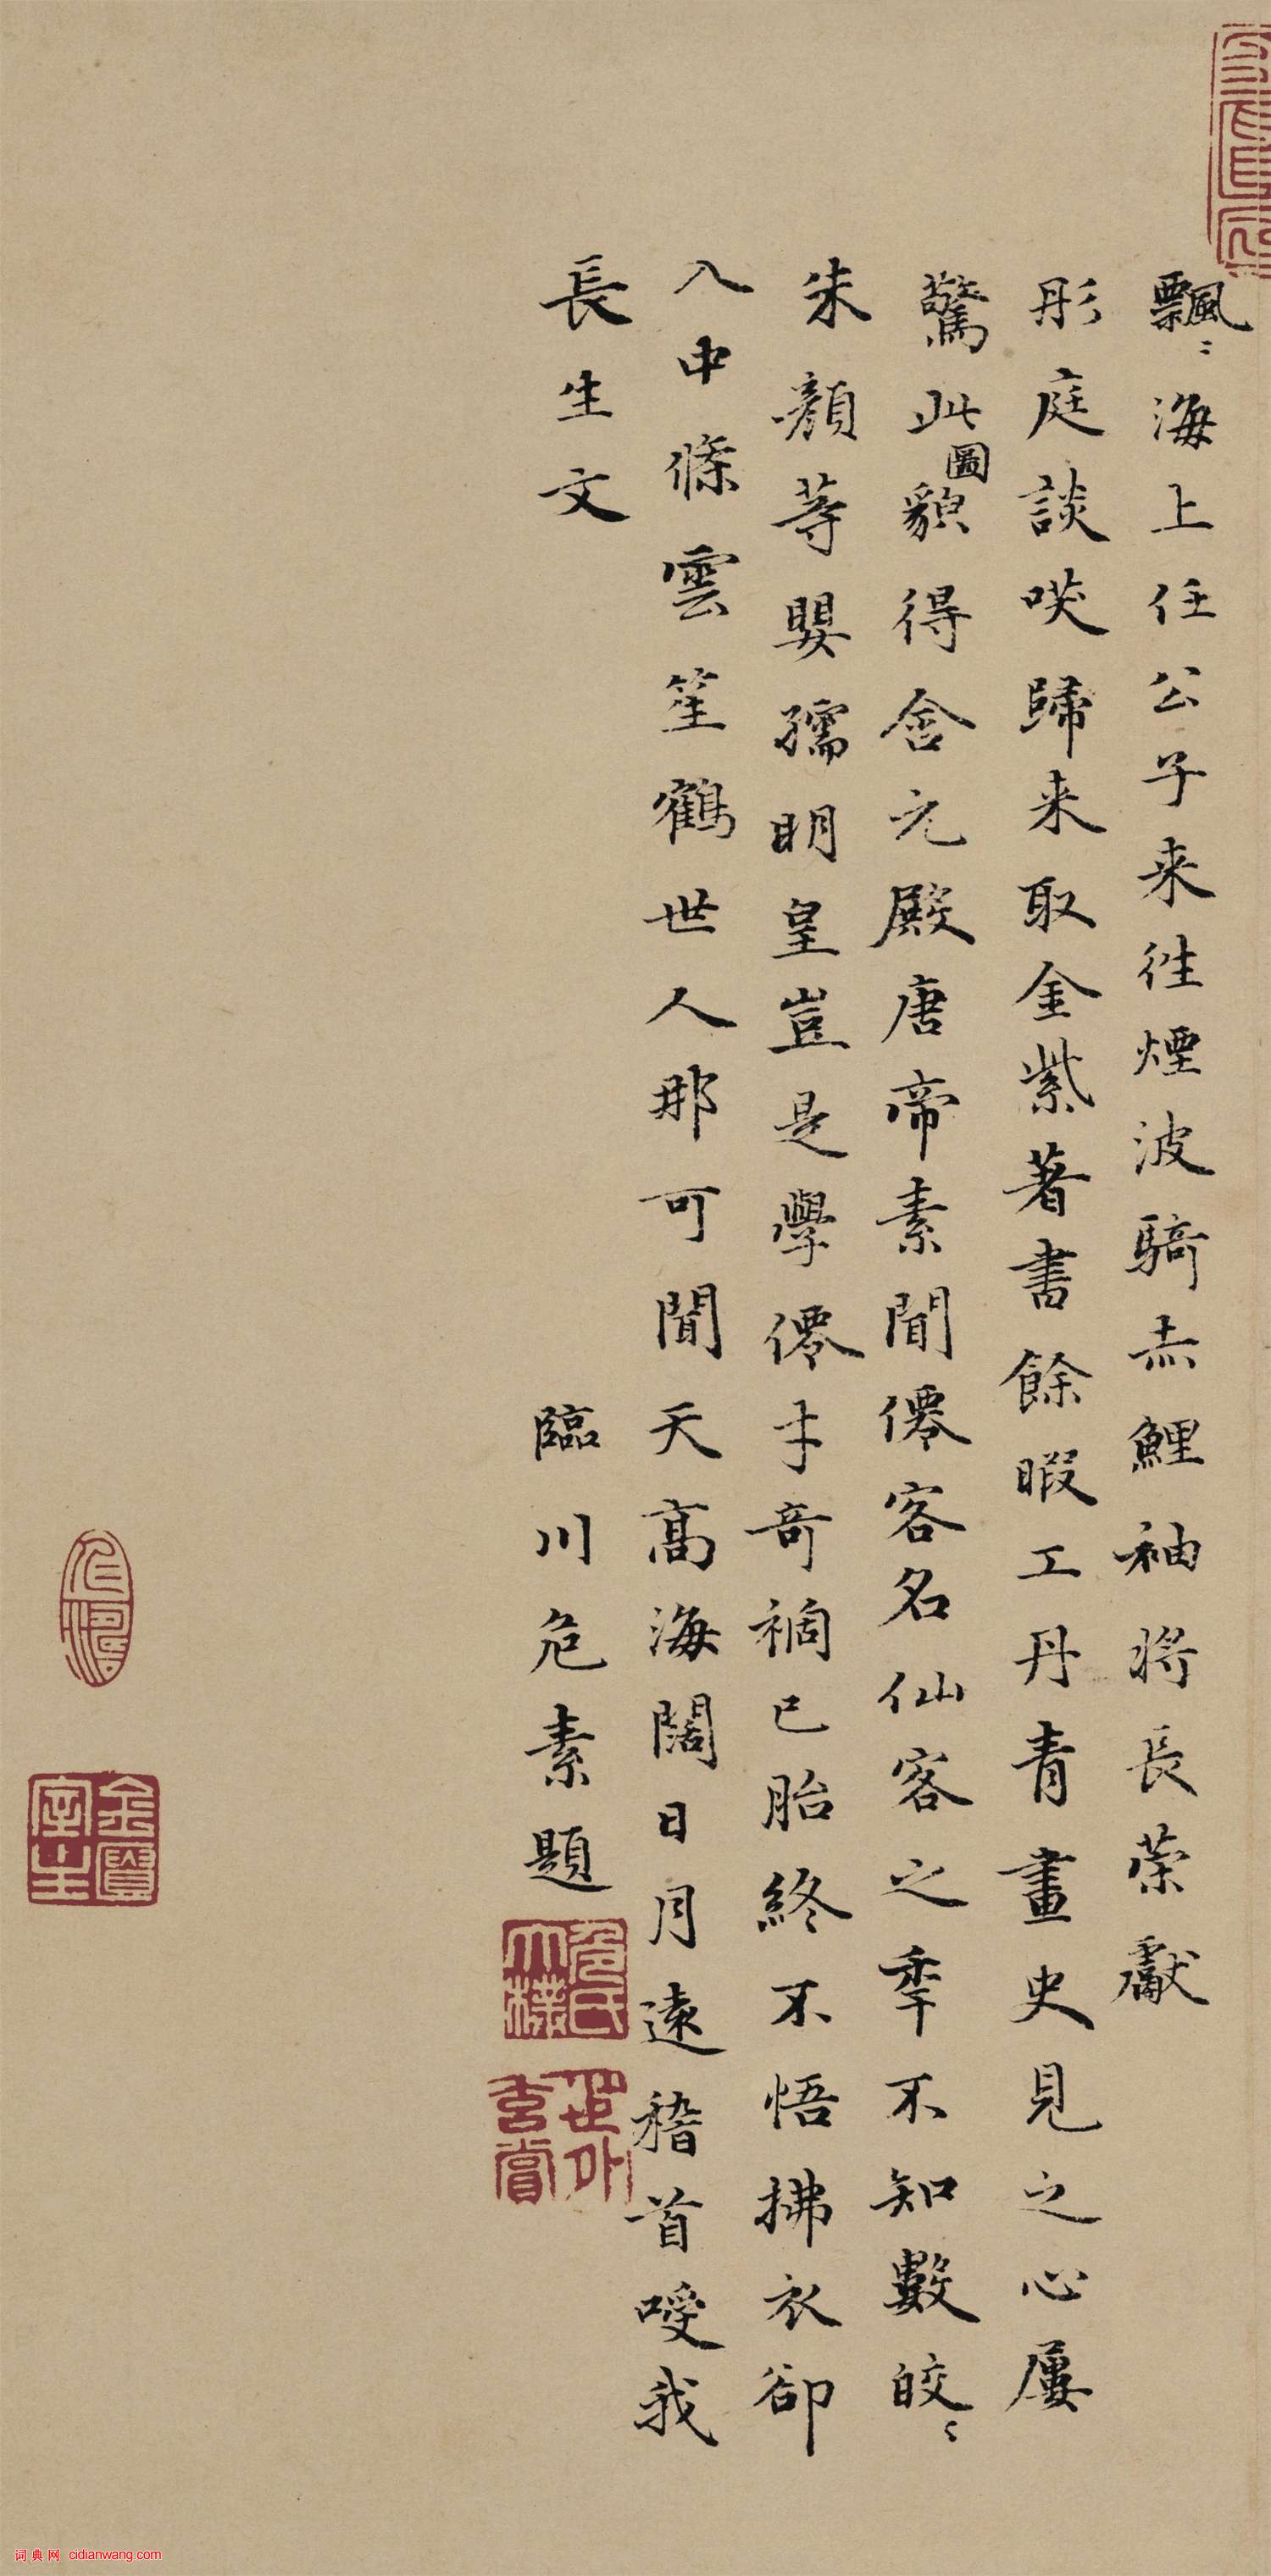 飄〻海上任公子来徃煙波騎赤鯉袖将長榮獻
彤庭談咲歸来取金紫著書餘暇工丹青畫史見之心屢
驚此圖貌得含元殿唐帝素聞僊客名仙客之季不知數皎〻
朱顔等嬰孺明皇豈是學僊才奇禍已胎終不悟拂衣卻
入中條雲笙鶴世人那可聞天高海闊日月遠稽首嘤我
長生文
臨川危素題
危氏太樸
世外玄賞
词典网 cidianwang.com